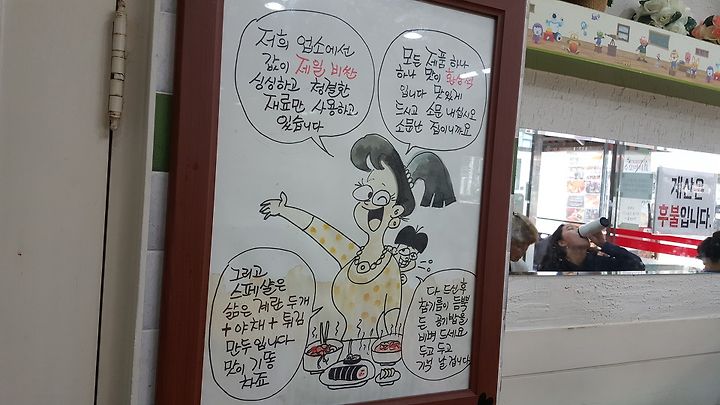 저희 업소에선
값이 제일 비싼
싱싱하고 청결한
재료만 사용하고
있습니다
모든 제품 하나
하나 맛이 환상적
입니다 맛있게
드시고 소문 내십시오
소문난 집이니까요
그리고
스페샬은
삶은 계란 두개
+야채+튀김
만두입니다
맛이 기똥
차죠
다 드신 후
참기름이 듬뿍
든 공기밥을
비벼 드세요
두고 두고
기억 날 겁니다
계산은
후불입니다.